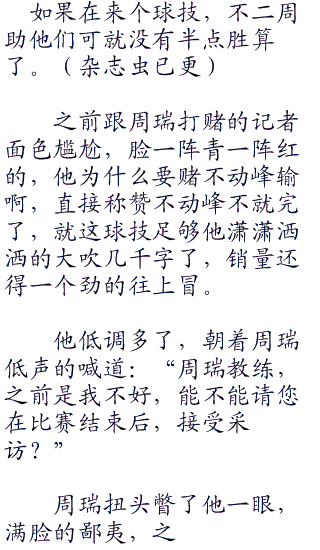 如果在来个球技，不二周
助他们可就没有半点胜算
了。（杂志虫已更）
之前跟周瑞打赌的记者
面色尴尬，脸一阵青一阵红
的，他为什么要赌不动峰输
啊，直接称赞不动峰不就完
了，就这球技足够他潇潇洒
洒的大吹几千字了，销量还
得一个劲的往上冒。
他低调多了，朝着周瑞
低声的喊道：“周瑞教练，
之前是我不好，能不能请您
在比赛结束后，接受采
访？”
周瑞扭头瞥了他一眼，
满脸的鄙夷，之